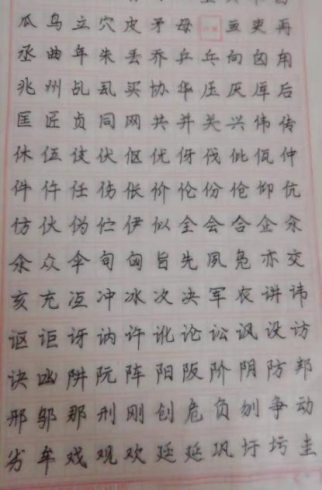 瓜鸟立穴皮矛母亘吏再
丞曲年朱丢乔乒乓向囟甩
兆州乩乱买协华压厌库后
匡匠贞同网共并关兴伟传
休伍伎伏伛优伢伐仳佤仲
件仵任伤伥价伦份伧仰伉
仿伙伪伫伊似全会合企氽
汆众伞旬匈旨先夙危亦交
亥充冱冲冰次决军农讲讳
讴讵讶讷许讹论讼讽设访
诀凼阱阮阵阳阪阶阴防邦
邢邬那刑刚创危负刎争动
劣牟戏观欢廷延巩圩圬圭